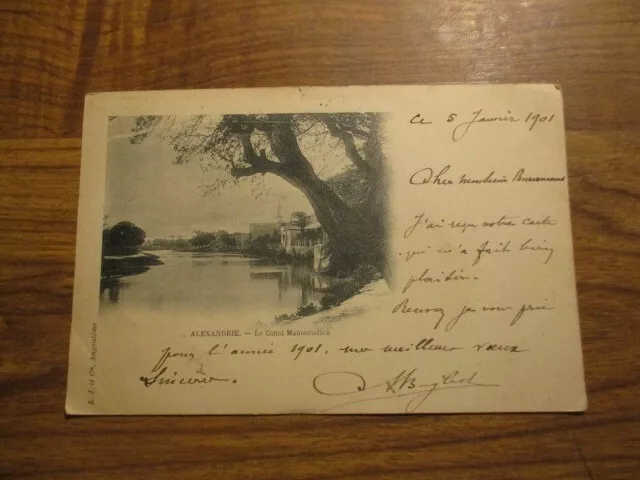 Ce 5 Janvier 1901
Cher Monsieur
J'ai reçu votre carte
qui m'a fait bien
plaisir.
Recevez je vous prie
ALEXANDRIE. — Le Canal Mahmoudieh
pour l'année 1901, mes meilleurs vœux
Sincères.